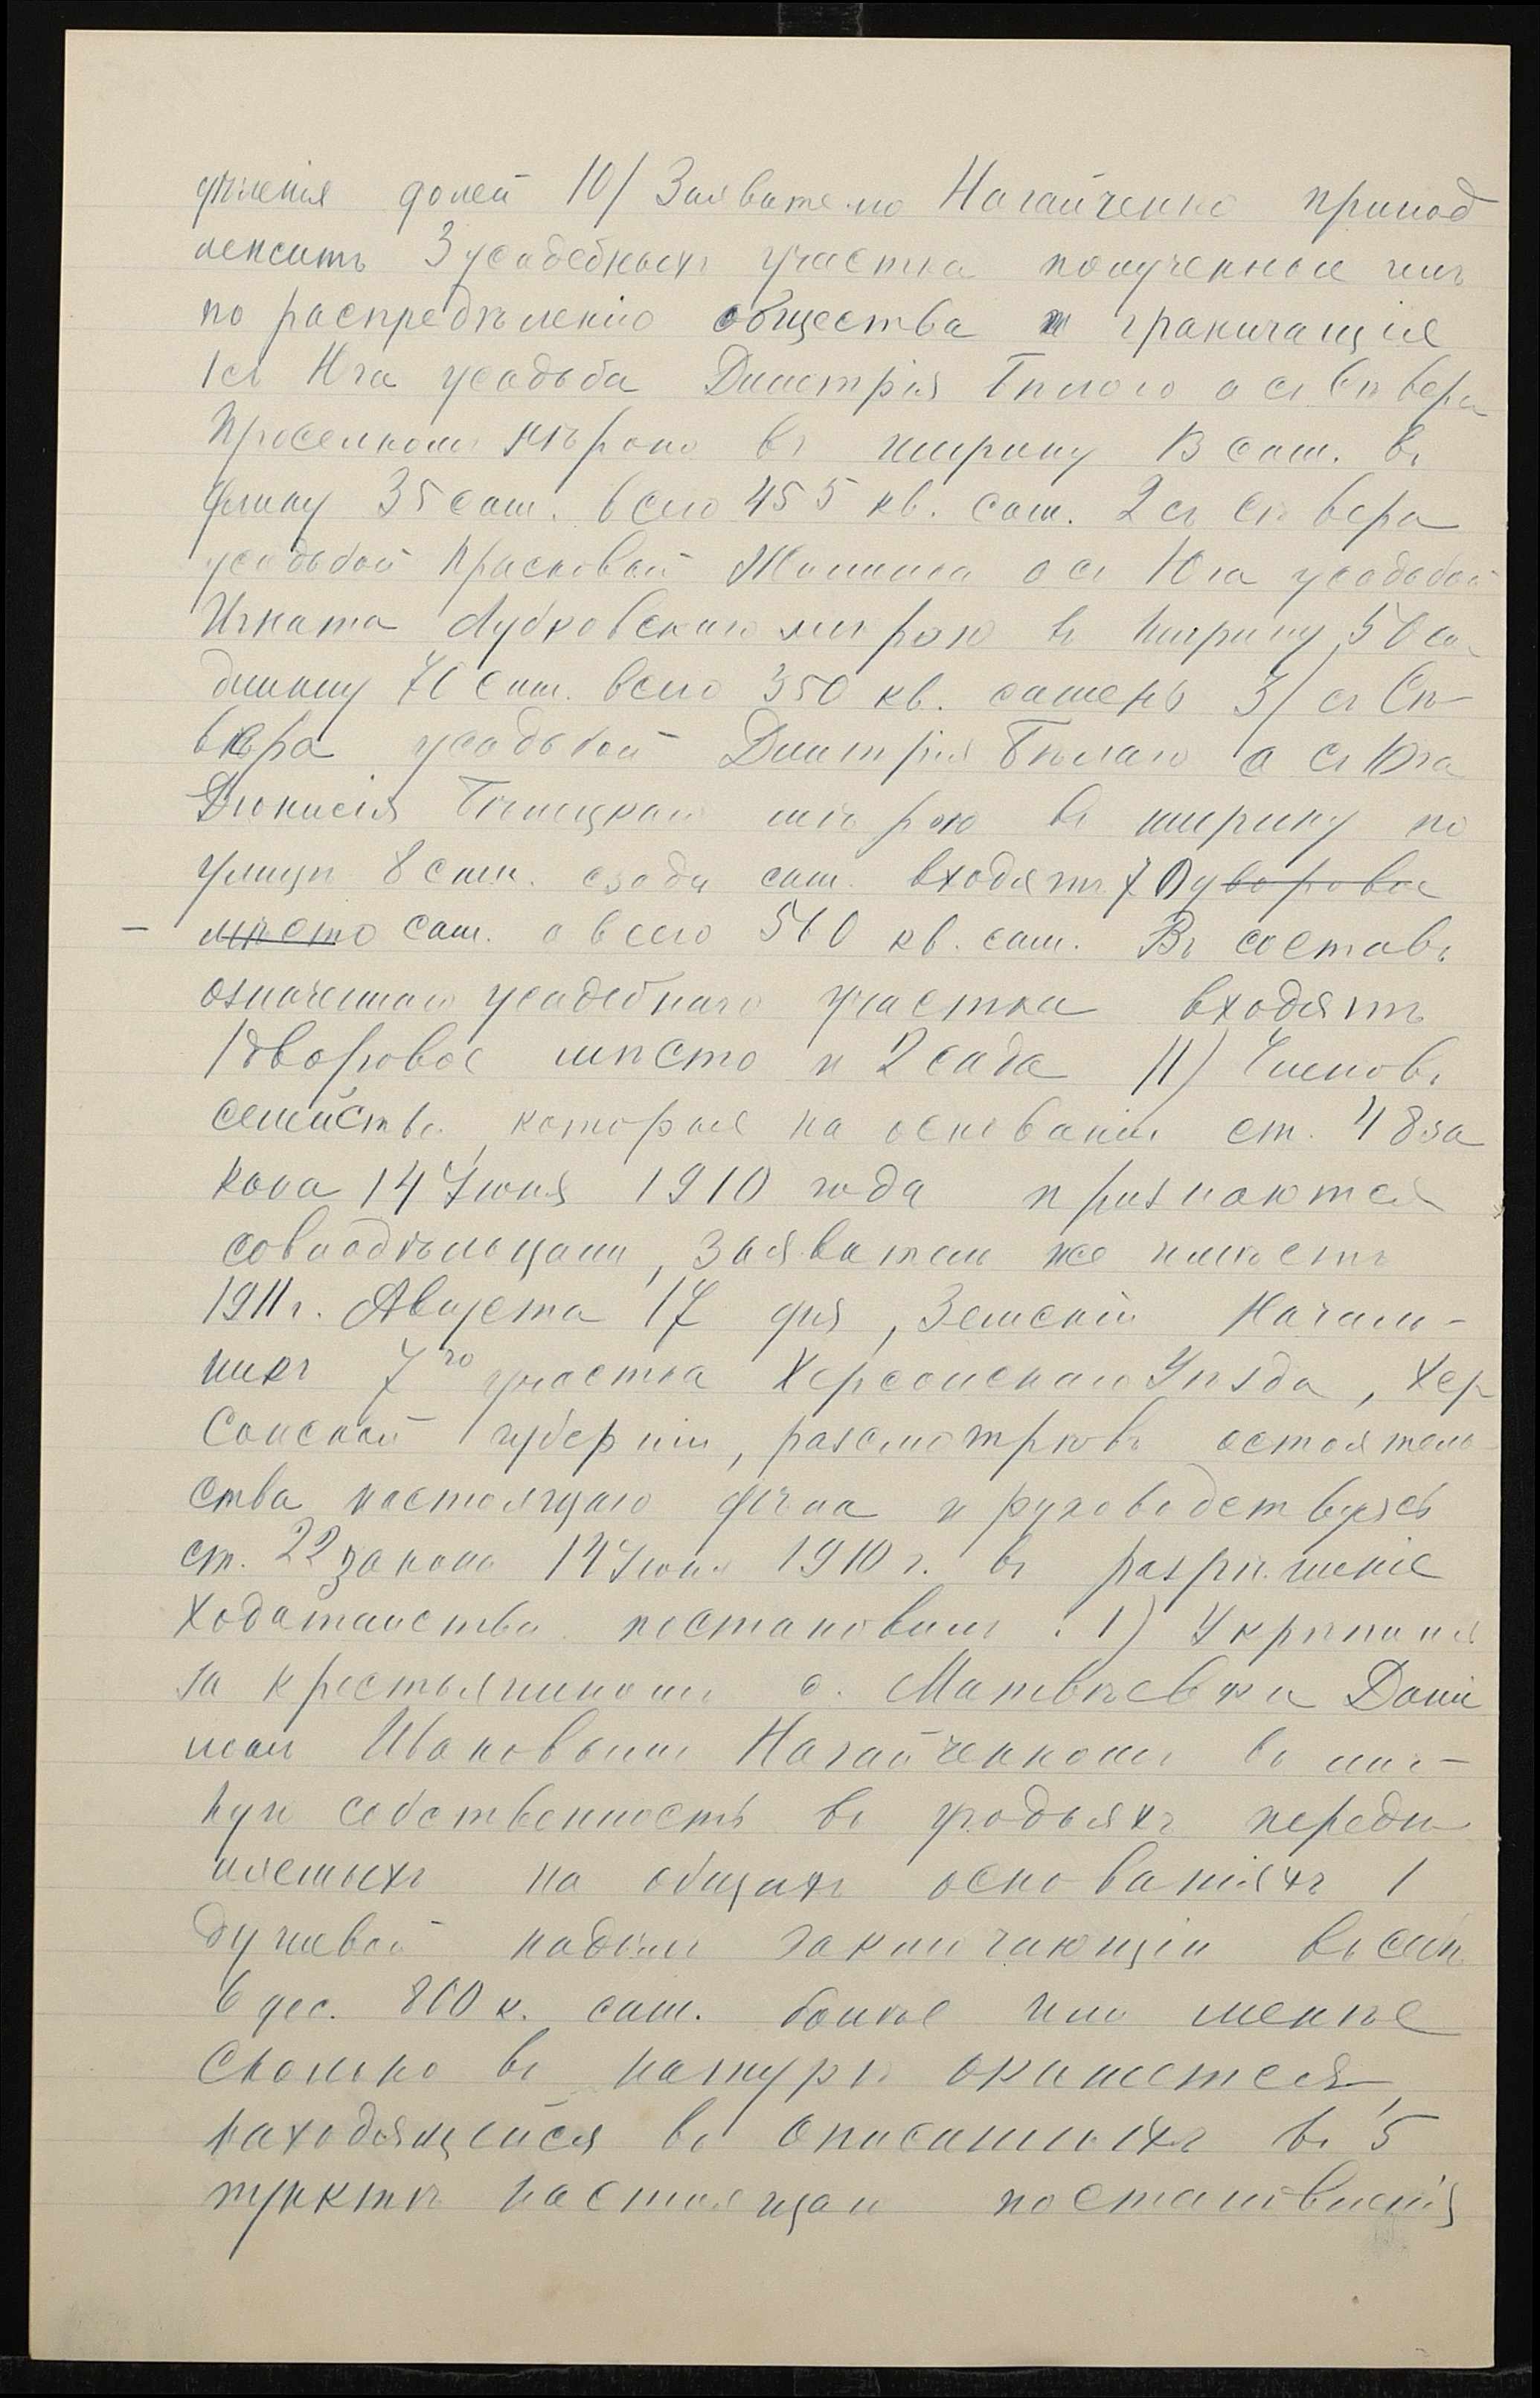 дѣленія долей 10/ Заявителю Нагайченко принад
лежитъ 3 усадебныхъ участка полученные имъ
по распредѣленію общества и граничащіе
1 съ Юга усадьба Дмитрія Бѣлого а съ Сѣвера
Проселкомъ мѣрою въ ширину 13 саж. въ
длину 35 саж. всего 455 кв. саж. 2 съ Сѣвера
усадьбой Прасковьи а съ Юга усадьбой
Игната Лубковскаго мѣрою въ ширину 50 са
длинну 70 саж. всего 350 кв. сажень 3/ съ Сѣ-
вера усадьбой Дмитрія Бѣлаго а съ Юга
Діонисія мѣрою въ ширину по
улицѣ 8 саж. сзади саж. входятъ 7 Дуворовое
- мѣсто саж. а всего 560 кв. саж. Въ составъ
означеннаго усадебнаго участка входятъ
1 дворовое мѣсто и 2 сада 11) Членовъ
семейства, которые на основаніи ст. 48 за
кона 14 Іюня 1910 года признаются
совладѣльцами, заявитель не имѣетъ
1911 г. Августа 17 дня, Земскій Началь-
никъ 7го участка Херсонскаго Уѣзда, Хер
Сонской губерніи, разсмотрѣвъ остоятель
ства настоящаго дѣла и руководствуясь
ст. 22 закона 14 Іюня 1910 г. въ разрѣшеніе
Ходатайства постановилъ: 1) Укрѣпить
за крестьяниномъ с. Матвѣевки Дани
ломъ Ивановымъ Нагайченкомъ въ лич-
ную собственность въ угодьяхъ передѣ
ляемыхъ на общихъ основаніяхъ 1
душевой надѣлъ заключающій въ себѣ
6 дес. 800 к. саж. болѣе или менѣе
Сколько въ натурѣ окажется,
находящейся въ описанныхъ въ 5
пунктѣ настоящаго постановленія